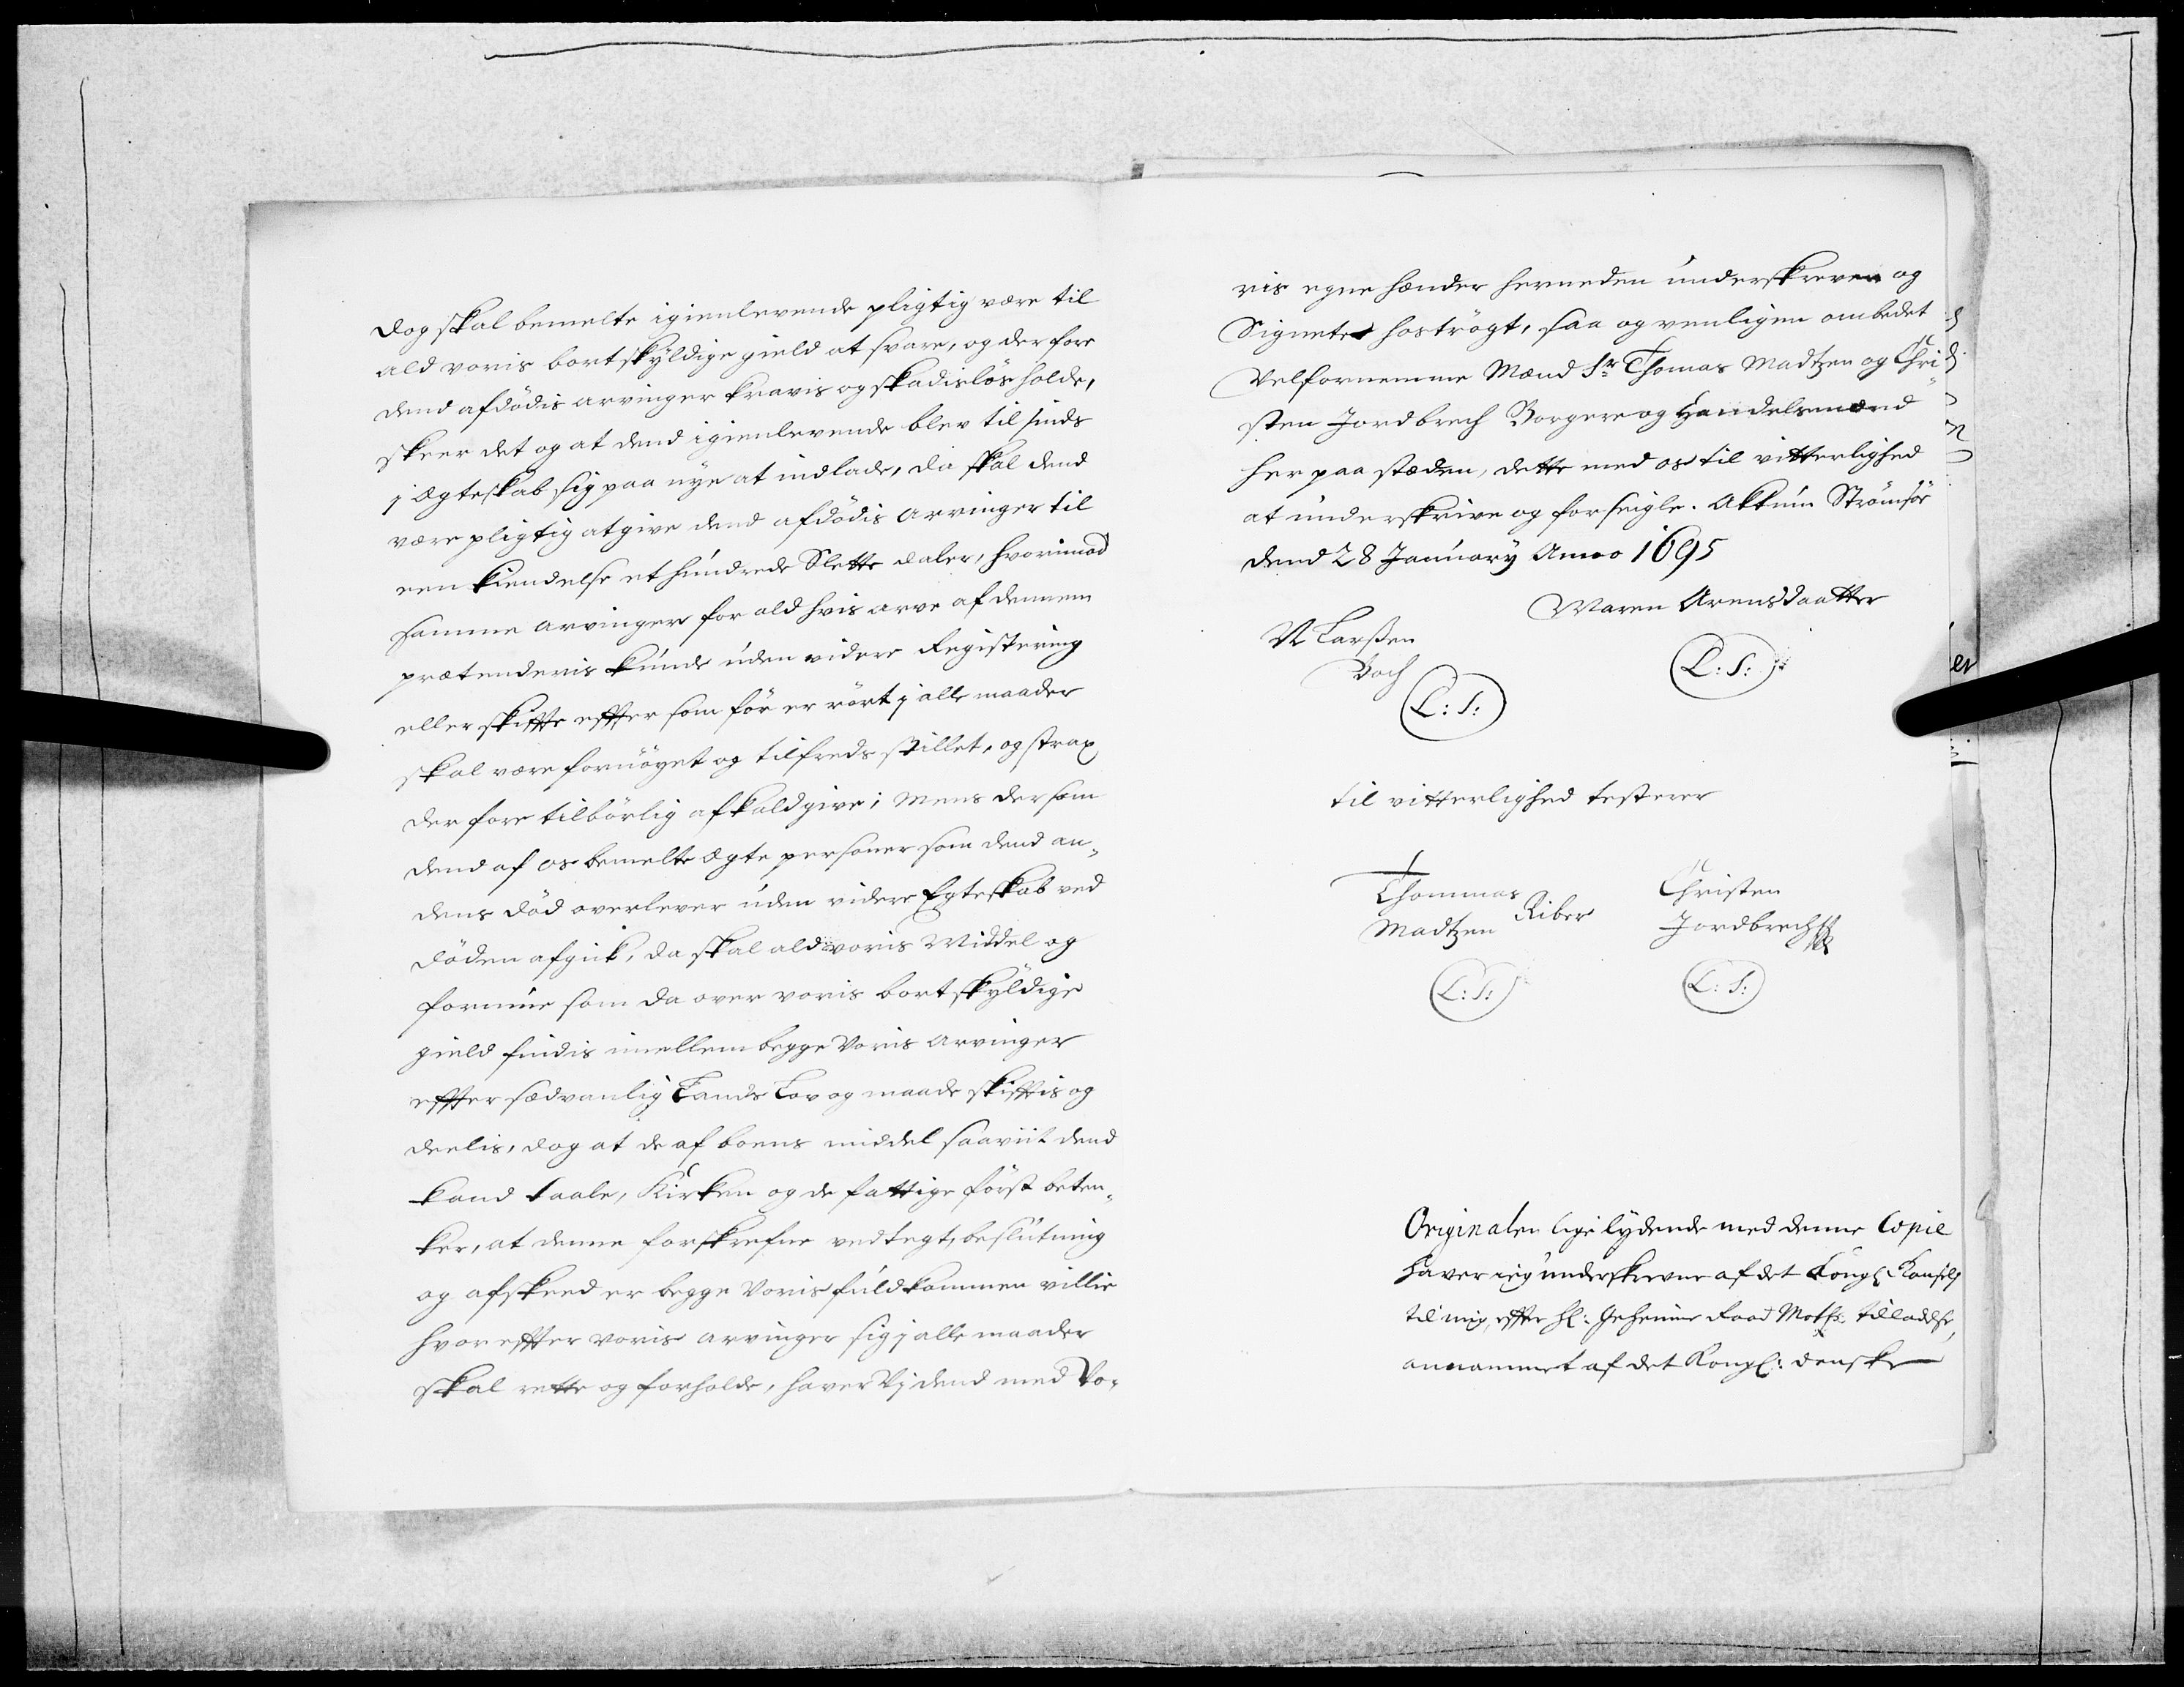 dog skal bemelte igienlevende pligtig være til
ald voris bortskyldige gield at svare, og derfore
dend afdödis arvinger kravis og skadislös holde,
skeer det og at dend igienlevende blev til sinds
j Ægteskab sig paa nye at indlade, da skal dend
være pligtig at give dend afdödis arvinger til
een kiendelse et hundrede Slette daler, hvorimod
samme arvinger for ald hvis arve af dennem
prætenderis kunde uden videre Registering
eller skiffte effter som för er rört j alle maader
skal være fornöyet og tilfreds stillet, og strax
derfore tilbörlig afkald give; Mens dersom
dend af os bemelte Ægte personer som dend an„
dens död overlever uden videre Egteskab ved
döden afgik, da skal ald voris Middel og
formue som da over voris bortskyldige
gield findis imellem begge Voris arvinger
effter sædvanlig Lands Lov og maade skifftis og
deelis, dog at de af boens middel saaviit dend
kand taale, Kirken og de fattige först beten„
ker, at denne forskrefne vedtegt, beslutning
og afskeed er begge Voris fuldkommen villie
hvoreffter voris arvinger sig j alle maader
skal rette og forholde, haver Vj dend med Vo„
ris egne hænder herneden underskreven og
Signeter hoströgt, saa og venligen ombedet
Velfornemme Mænd Sr Thomas Madtzen og Chri„
sten Jordbrech Borgere og Handelsmænd
her paa stæden, dette med os til vitterlighed
at underskrive og forseigle. Aktum Strömsöe
dend 28 January Anno 1695
Maren Arensdaatter
N Larßen
Boch
L: S:
L: S:
til vitterlighed testerer
Thommas
Madtzen Riber
Christen
Jordbrech
L: S:
L: S:
Originalen lige lydende med denne Copie
haver jeg underskrevne af det Kongl:
til mig, effter Hl: Geheime Raad Moths tilladelse,
annammet af det Kongl: danske